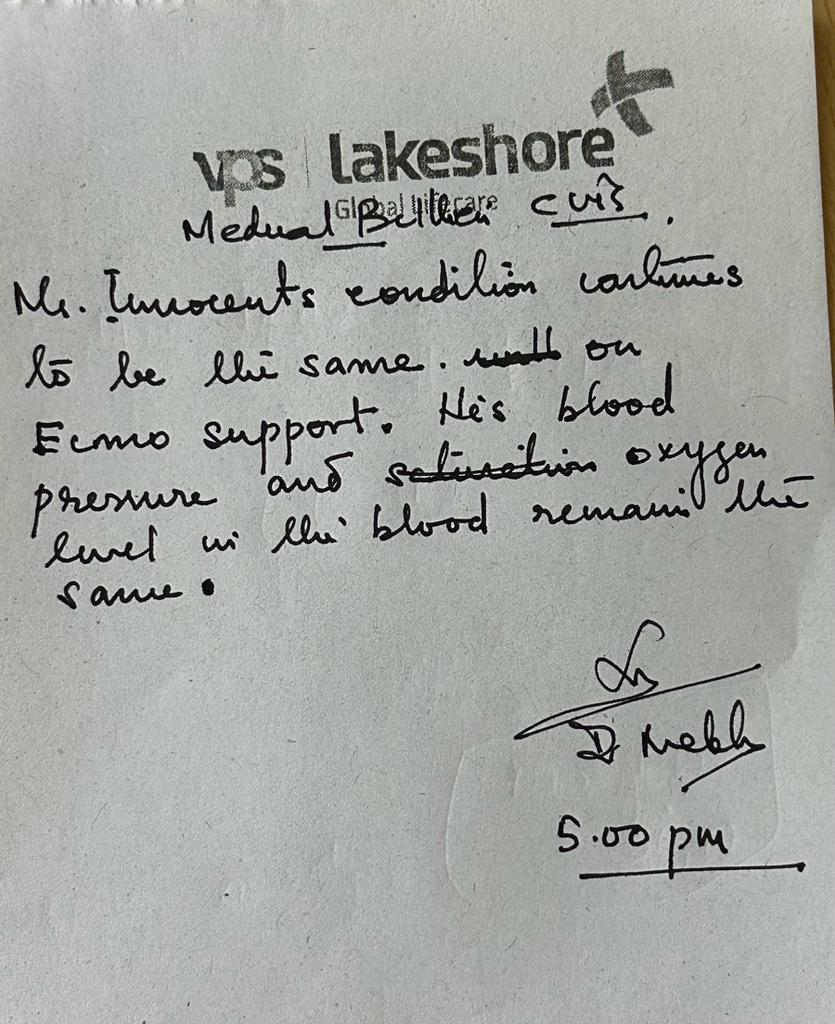 vps lakeshore
Global Lifecare
Medical Bulletin
Mr. Innocents condition continues
to be the same. on
Ecmo support. His blood
pressure and saturation oxygen
level in the blood remain the
same.
D
5.00 pm